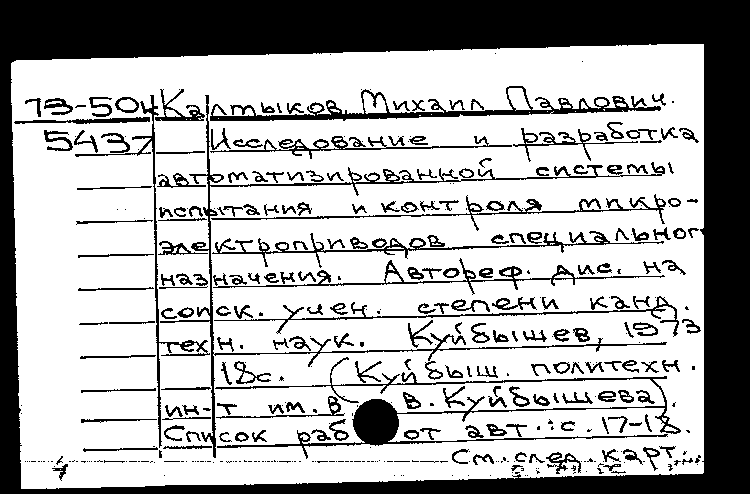 73-504 Калтыков, Михаил Павлович.
5437 Исследование и разработка
автоматизированной системы
испытания и контроля микро-
электроприводов специального
назначения. Автореф. дис. на
соиск. учен. степени канд.
техн. наук. Куйбышев, 1973
18с. (Куйбыш. политехн.
ин-т им. В В. Куйбышева).
Список работ авт.: с. 17-18.
См. след. карт.